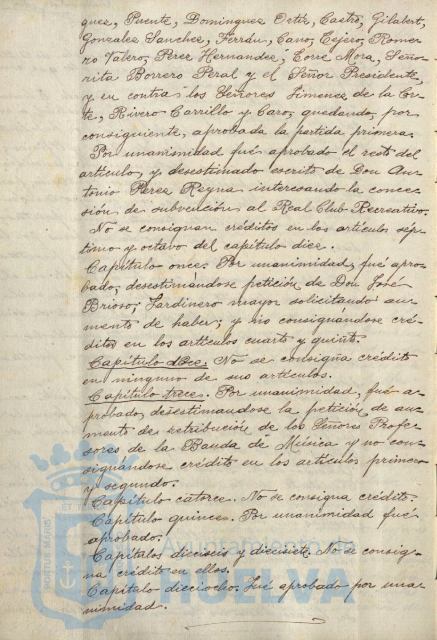 guez, Puente, Dominguez Ortiz, Castro, Gilabert,
Gonzalez Sanchez, Terrán, Cano, Tejero, Rome-
ro Valero, Perez Hernandez, Torre Mora, Seño-
rita Borrero Peral y el Señor Presidente,
y en contra los Señores Jimenez de la Cor-
te, Rivero Carrillo y Caro, quedando, por
consiguiente, aprobada la partida primera.
Por unanimidad fué aprobado el resto del
artículo, y desestimado escrito de Don An-
tonio Perez Reyna interesando la conce-
sión de subvención al Real Club Recreativo.
No se consignan créditos en los artículos sép-
timo y octavo del capítulo diez.
Capítulo once. Por unanimidad, fué apro-
bado, desestimándose petición de Don José
Brioso, Jardinero mayor solicitando au-
mento de haber; y no consignándose cré-
ditos en los artículos cuarto y quinto.
Capítulo doce. No se consigna crédito
en ninguno de sus artículos.
Capítulo trece. Por unanimidad, fué a-
probado, desestimándose la petición de au-
mento de retribución de los Señores Profe-
sores de la Banda de Música y no con-
signándose crédito en los artículos primero
y segundo.
Capítulo catorce. No se consigna crédito.
Capítulo quince. Por unanimidad fué
aprobado.
Capítulos dieciseis y diecisiete. No se consig-
na crédito en ellos.
Capítulo dieciocho. Fué aprobado por una-
nimidad.
Ayuntamiento de
HUELVA